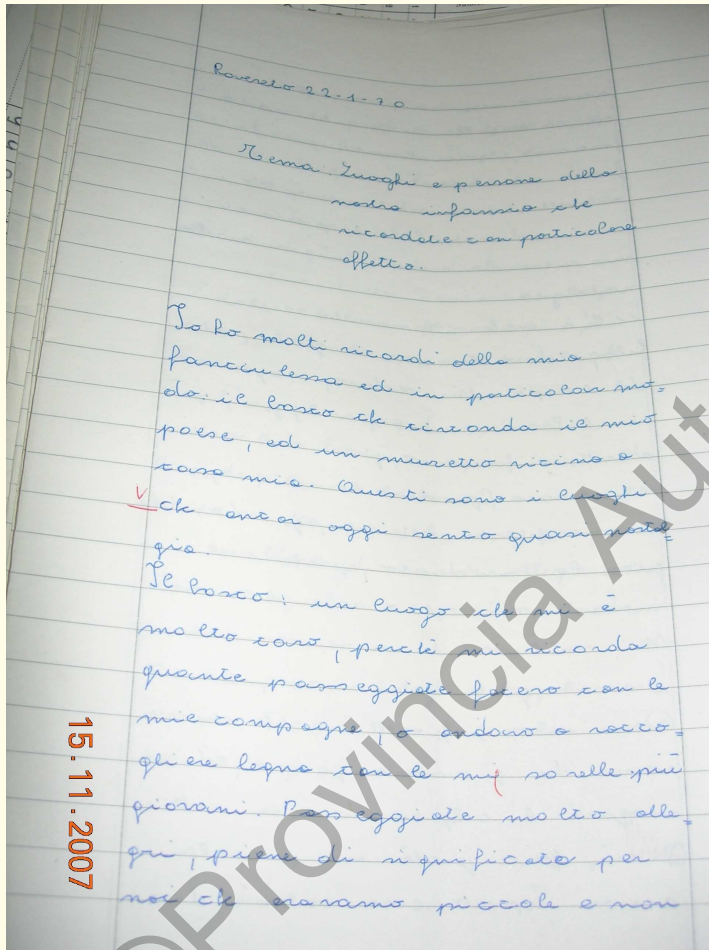 Rovereto 22-1-70
Tema. Luoghi e persone della
nostra infanzia che
ricordate con particolare
affetto.
Io ho molti ricordi della mia
fanciulessa ed in particolar mo=
do: il bosco che circonda il mio
paese, ed un muretto vicino a
casa mia. Questi sono i luoghi
V
che ancor oggi sento quasi nostal=
gia.
Il bosco: un luogo che mi è
molto caro, perchè mi ricorda
quante passeggiate facevo con le
mie compagne, o andavo a racco=
gliere legna con le mie sorelle più
giovani. Passeggiate molto alle=
gri, piene di significato per
noi che eravamo piccole e non
15.11.2007
©Provincia Aut